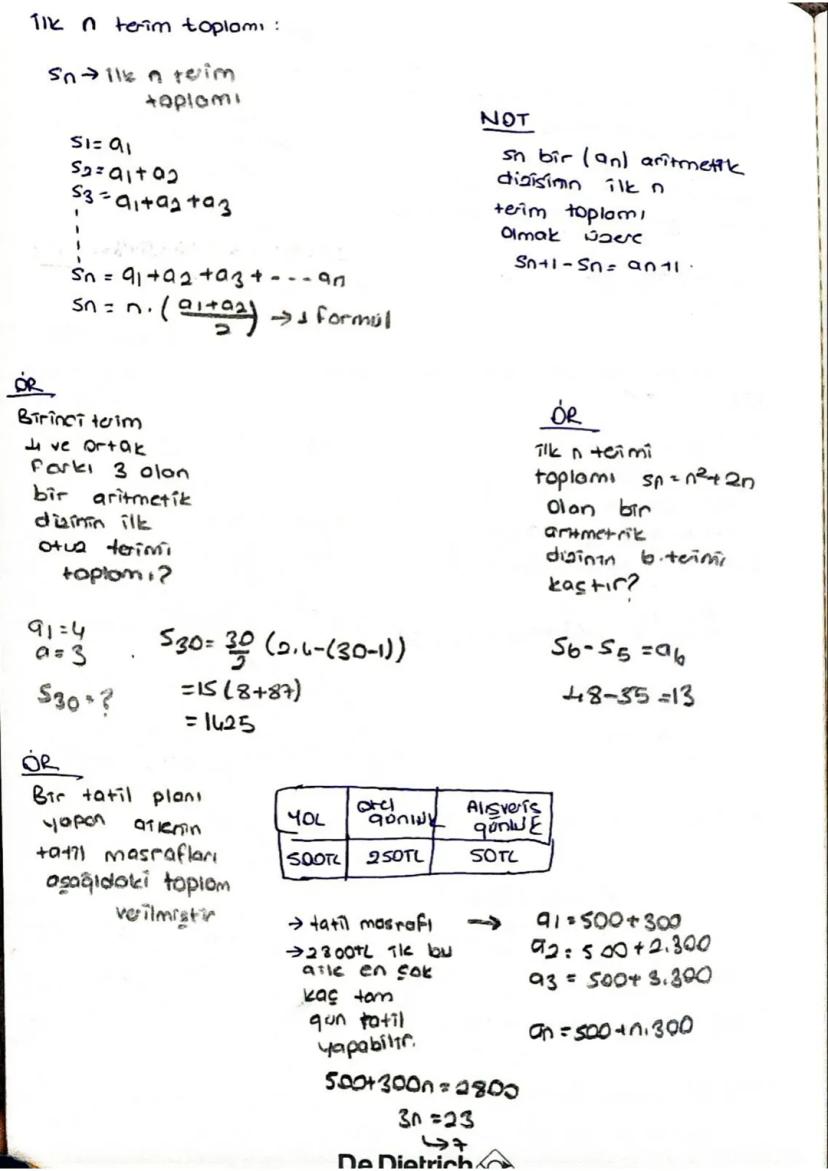 ilk n terim toplamı :
Sn → ilk n terim
toplamı
S1 = a1
S2 = a1 + a2
S3 = a1 + a2 + a3
Sn = a1 + a2 + a3 + --- an
Sn = n . ( a1 + a2 / 2 ) → 1 formül
NOT
Sn bir (an) aritmetik
dizisinin ilk n
terim toplamı
olmak üzere
Sn+1 - Sn = an+1 .
ÖR
Birinci terim
4 ve ortak
farkı 3 olan
bir aritmetik
dizinin ilk
otuz terimi
toplamı?
a1 = 4
a = 3
S30 = ?
S30 = 30/2 (2.4-(30-1))
= 15 (8+87)
= 1425
ÖR
ilk n terimi
toplamı Sn = n²+2n
olan bir
aritmetrik
dizinin 6. terimi
kaçtır?
S6 - S5 = a6
48-35 = 13
ÖR
Bir tatil planı
yapan ailenin
tatil masrafları
aşağıdaki toplam
verilmiştir
YOL Otel günlük Alışveriş günlük
500TL 250TL 50TL
→ tatil masrafı → a1 = 500 + 300
a2 = 500 + 2.300
a3 = 500 + 3.300
an = 500 + n.300
→ 2800TL ile bu
aile en çok
kaç tam
gün tatil
yapabilir.
500+300n = 2800
3n = 23
↳ 7
De Dietrich